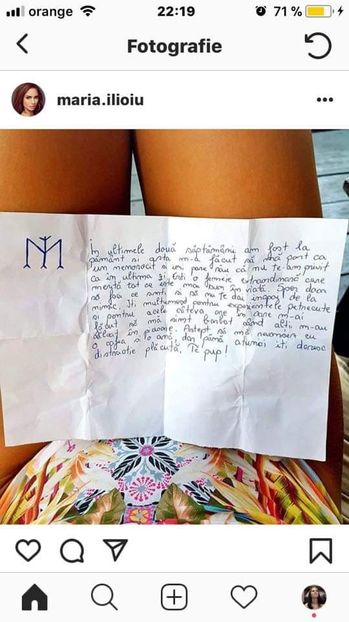 orange 22:19 71 %
Fotografie
maria.ilioiu
În ultimele două săptămâni am fost la
pământ și asta m-a făcut să mă port ca
un memorocit și-mi pare rău că nu te-am privit
ca în ultima zi. Ești o femeie extraordinară care
merită tot ce este mai bun în viață. Sper doar
să faci ce simți și să nu te dai înapoi de la
nimic. Îți mulțumesc pentru experiențele petrecute
și pentru acele câteva ore în care m-ai
făcut să mă simt bărbat când alții m-au
călcat în picioare. Aștept să mă revanșez cu
o cafea și o dar până atunci îți doresc
distracție plăcută. Te pup!